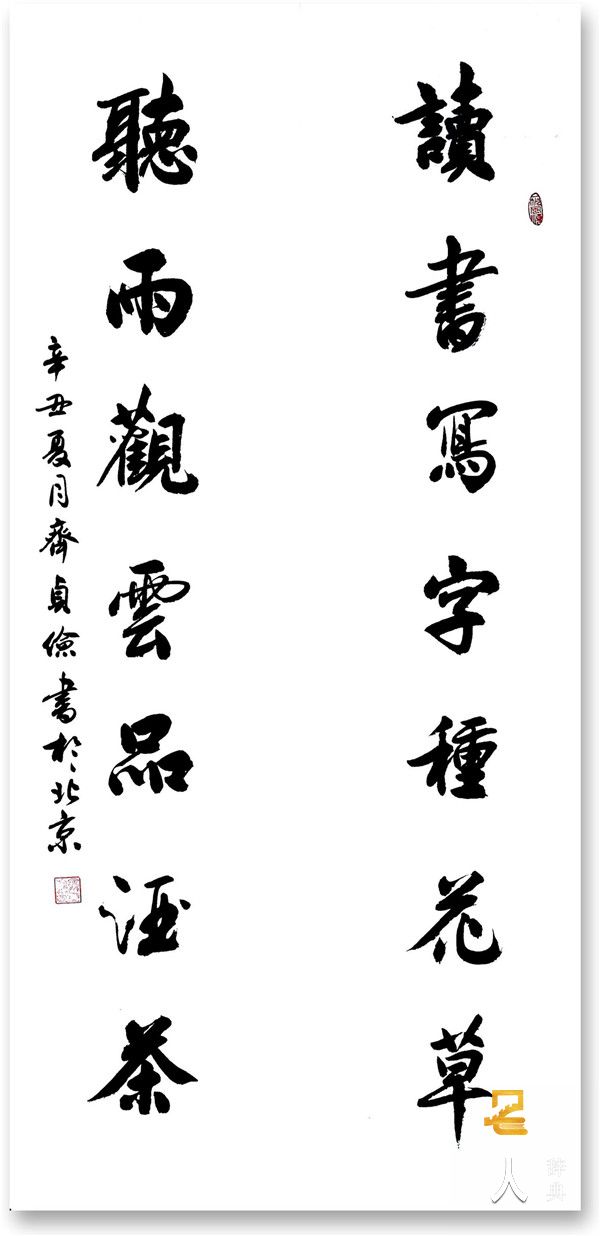 讀書寫字種花草
聽雨觀雲品酒茶
辛丑夏月齊貞儉書於北京
名人
辞典